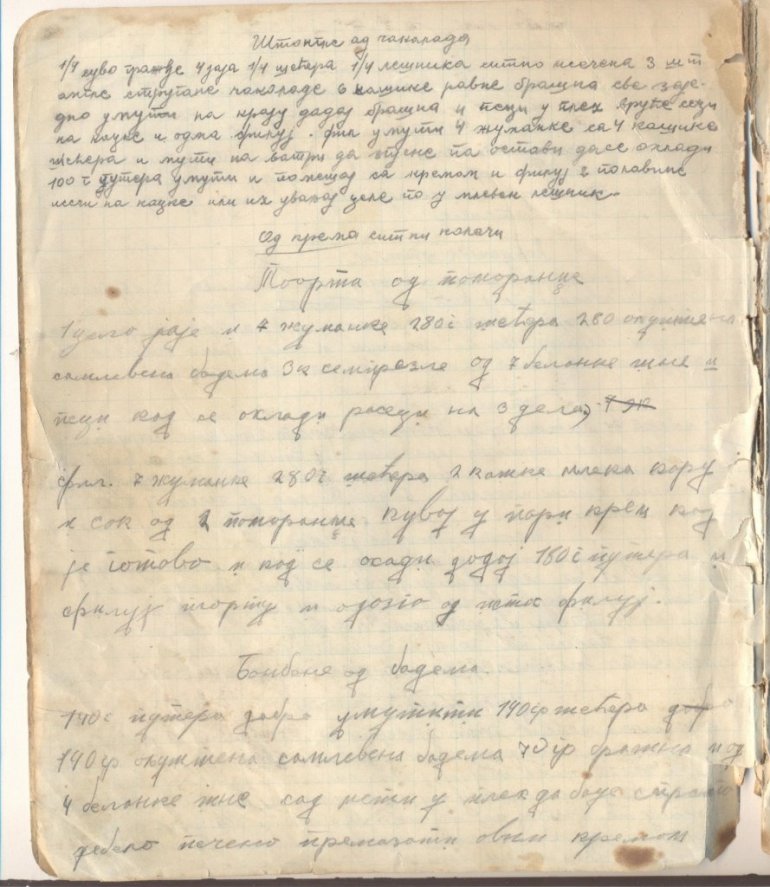 Штангле од чоколаде
1/4 суво грожђе 4 јаја 1/4 шећера 1/4 лешника ситно исечена 3 шт
англе стругане чоколаде 6 кашике равне брашна све заје-
дно умути на крају додај брашна и пеци у плех вруће сеци
на коцке и одма филуј. фил умути 4 жуманке са 4 кашике
шећера и мути на ватри да згусне па остави да се охлади
100 г путера умути и помешај са кремом и филуј 2 половине
сеци на коцке или их уваљај целе по у млевен лешник.
Од крема ситни колачи
Тоорта од поморанџе
1 цело јаје и 7 жуманке 280 г шећера 280 олуштена
самлевена бадема 3 к од 7 беланке шне и
пеци кад се охлади расеци на 3 дела,
фил. 7 жуманке 280 г шећера 2 кашике млека кору
и сок од 2 поморанџе кувај у пари крем кад
је готово и кад се охлади додај 180 г путера и
филуј торту и одозго од исти филуј.
Бонбоне од бадема.
140 г путера добро умутити 140 гр шећера добро
140 гр олуштена самлевена бадема 70 гр брашна и од
4 беланке шне сад пећи у плех да буде
дебело печено премазати овим кремом